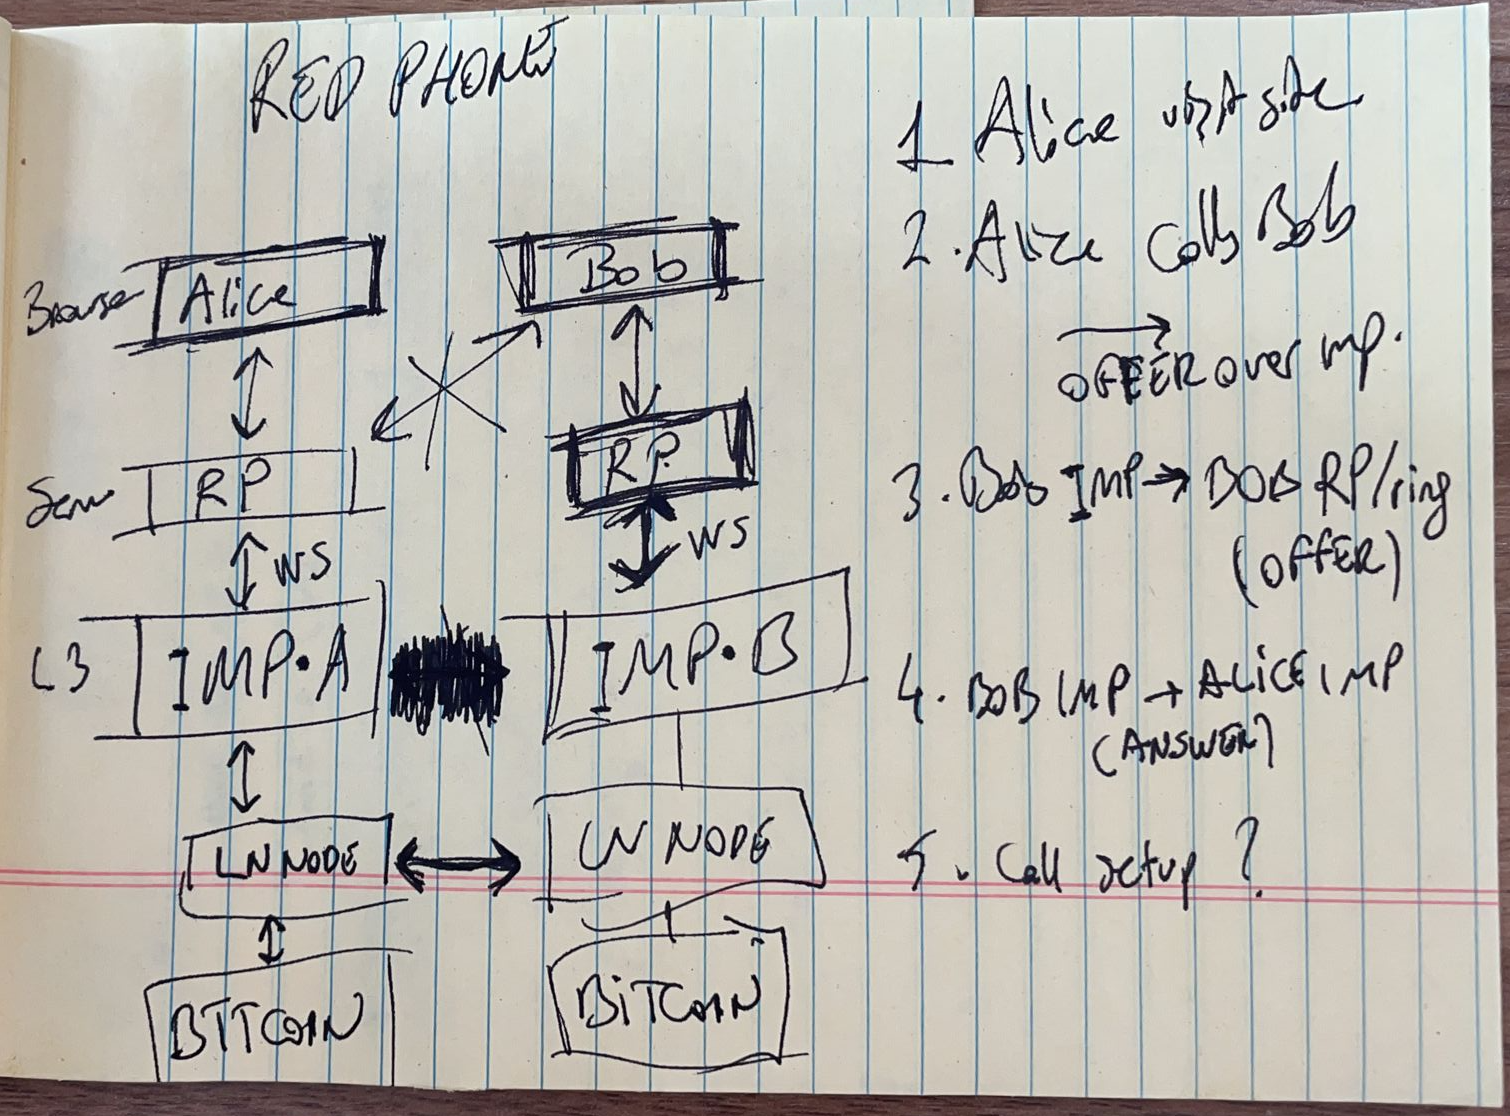 RED PHONE
Browser
Alice
Bob
RP
RP
WS
WS
L3
IMP•A
IMP•B
LN NODE
LN NODE
BITCOIN
BITCOIN
1 Alice visit site
2. Alice calls Bob
OFFER over imp.
3. Bob IMP → BOB RP/ring
(OFFER)
4. BOB IMP → ALICE IMP
(ANSWER)
5. Call setup ?